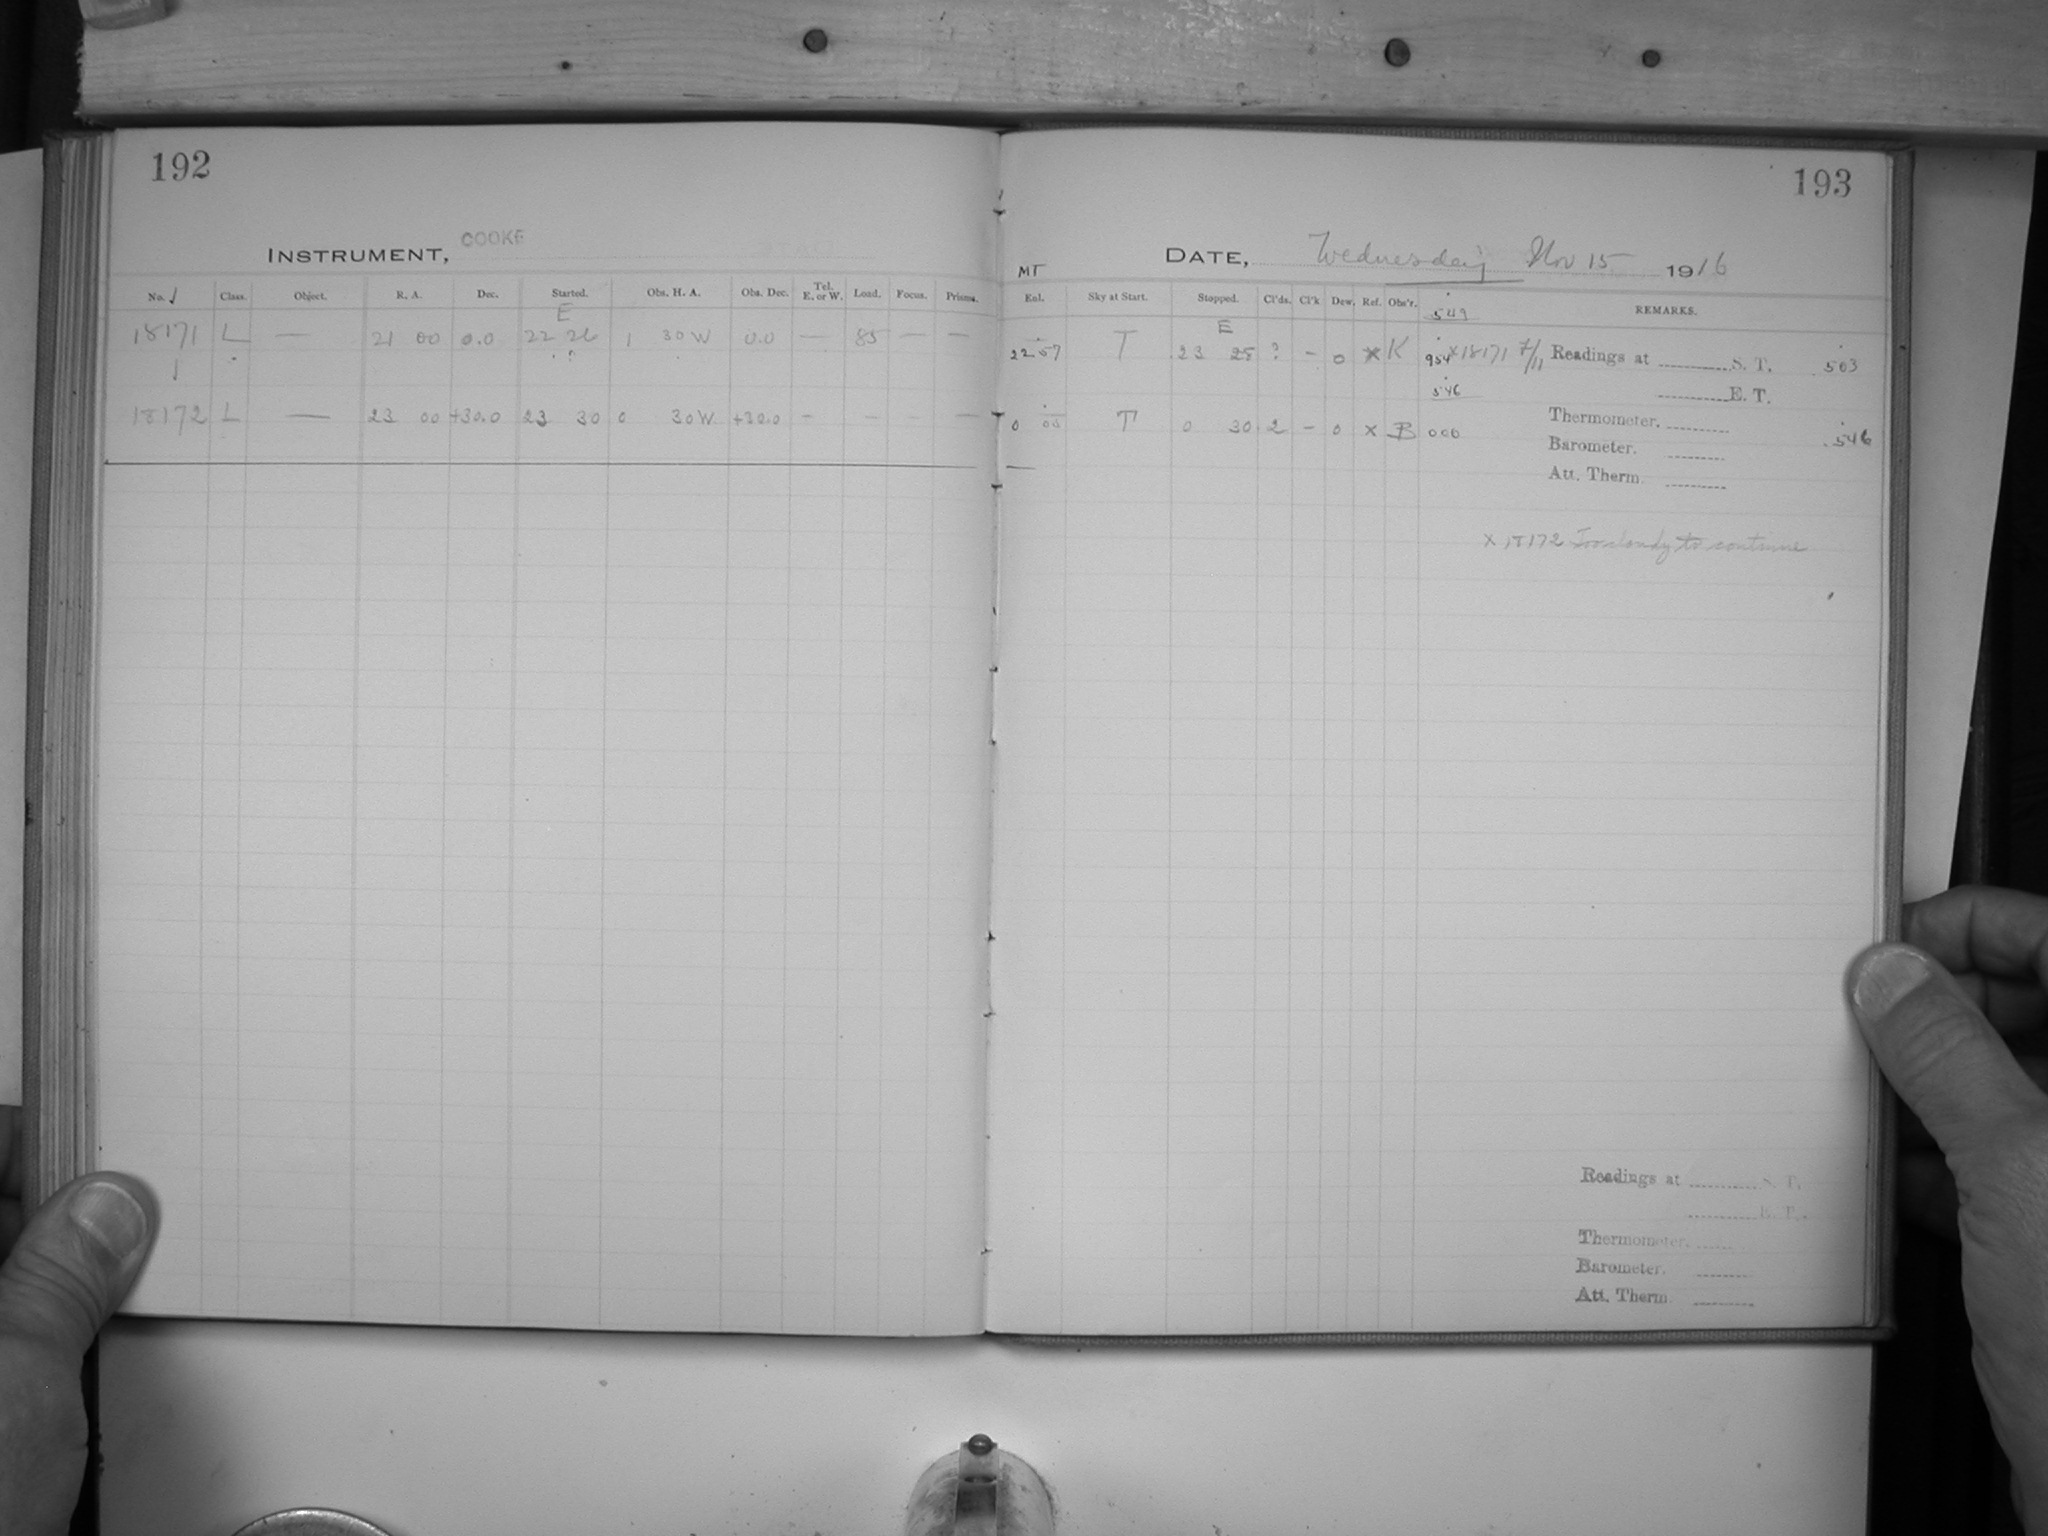 192
INSTRUMENT, COOKE
No. Class. Object. R. A. Dec. Started. Obs. H. A. Obs. Dec. Tel. E. or W. Load. Focus. Prisms.
E
18171 L — 21 00 0.0 22 26 1 30 W 0.0 — 85 — —
? ?
18172 L — 23 00 +30.0 23 30 0 30 W. +30.0 — — — —
193
DATE, Wednesday Nov 15 1916
MT
Exl. Sky at Start. Stopped. Cl'ds. Cl'k Dew. Ref. Obs'r. REMARKS.
549
E
22 57 T 23 25 ? — 0 x K 954 x 18171 7/11 Readings at S. T. 503
546 E. T.
Thermometer.
0 00 T 0 30 2 — 0 x B 000 546
Barometer.
Att. Therm.
x 18172 Too cloudy to continue
Readings at S. T.
E. T.
Thermometer.
Barometer.
Att. Therm.